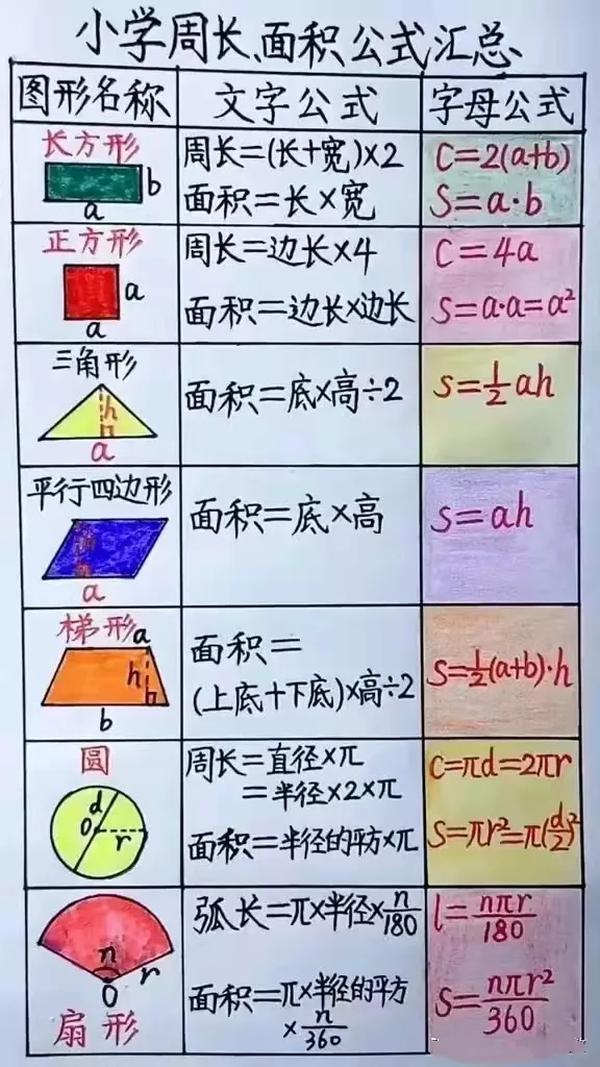 小学周长、面积公式汇总
图形名称 文字公式 字母公式
长方形
b
a
周长=(长+宽)×2
面积=长×宽
C=2(a+b)
S=a·b
正方形
a
a
周长=边长×4
面积=边长×边长
C=4a
S=a·a=a²
三角形
h
a
面积=底×高÷2
S=½ah
平行四边形
a
面积=底×高
S=ah
梯形
a
h
b
面积=
(上底+下底)×高÷2
S=½(a+b)·h
圆
d
O
r
周长=直径×π
=半径×2×π
面积=半径的平方×π
C=πd=2πr
S=πr²=π(d/2)²
n
r
O
扇形
弧长=π×半径×n/180
面积=π×半径的平方
×n/360
l=nπr/180
S=nπr²/360